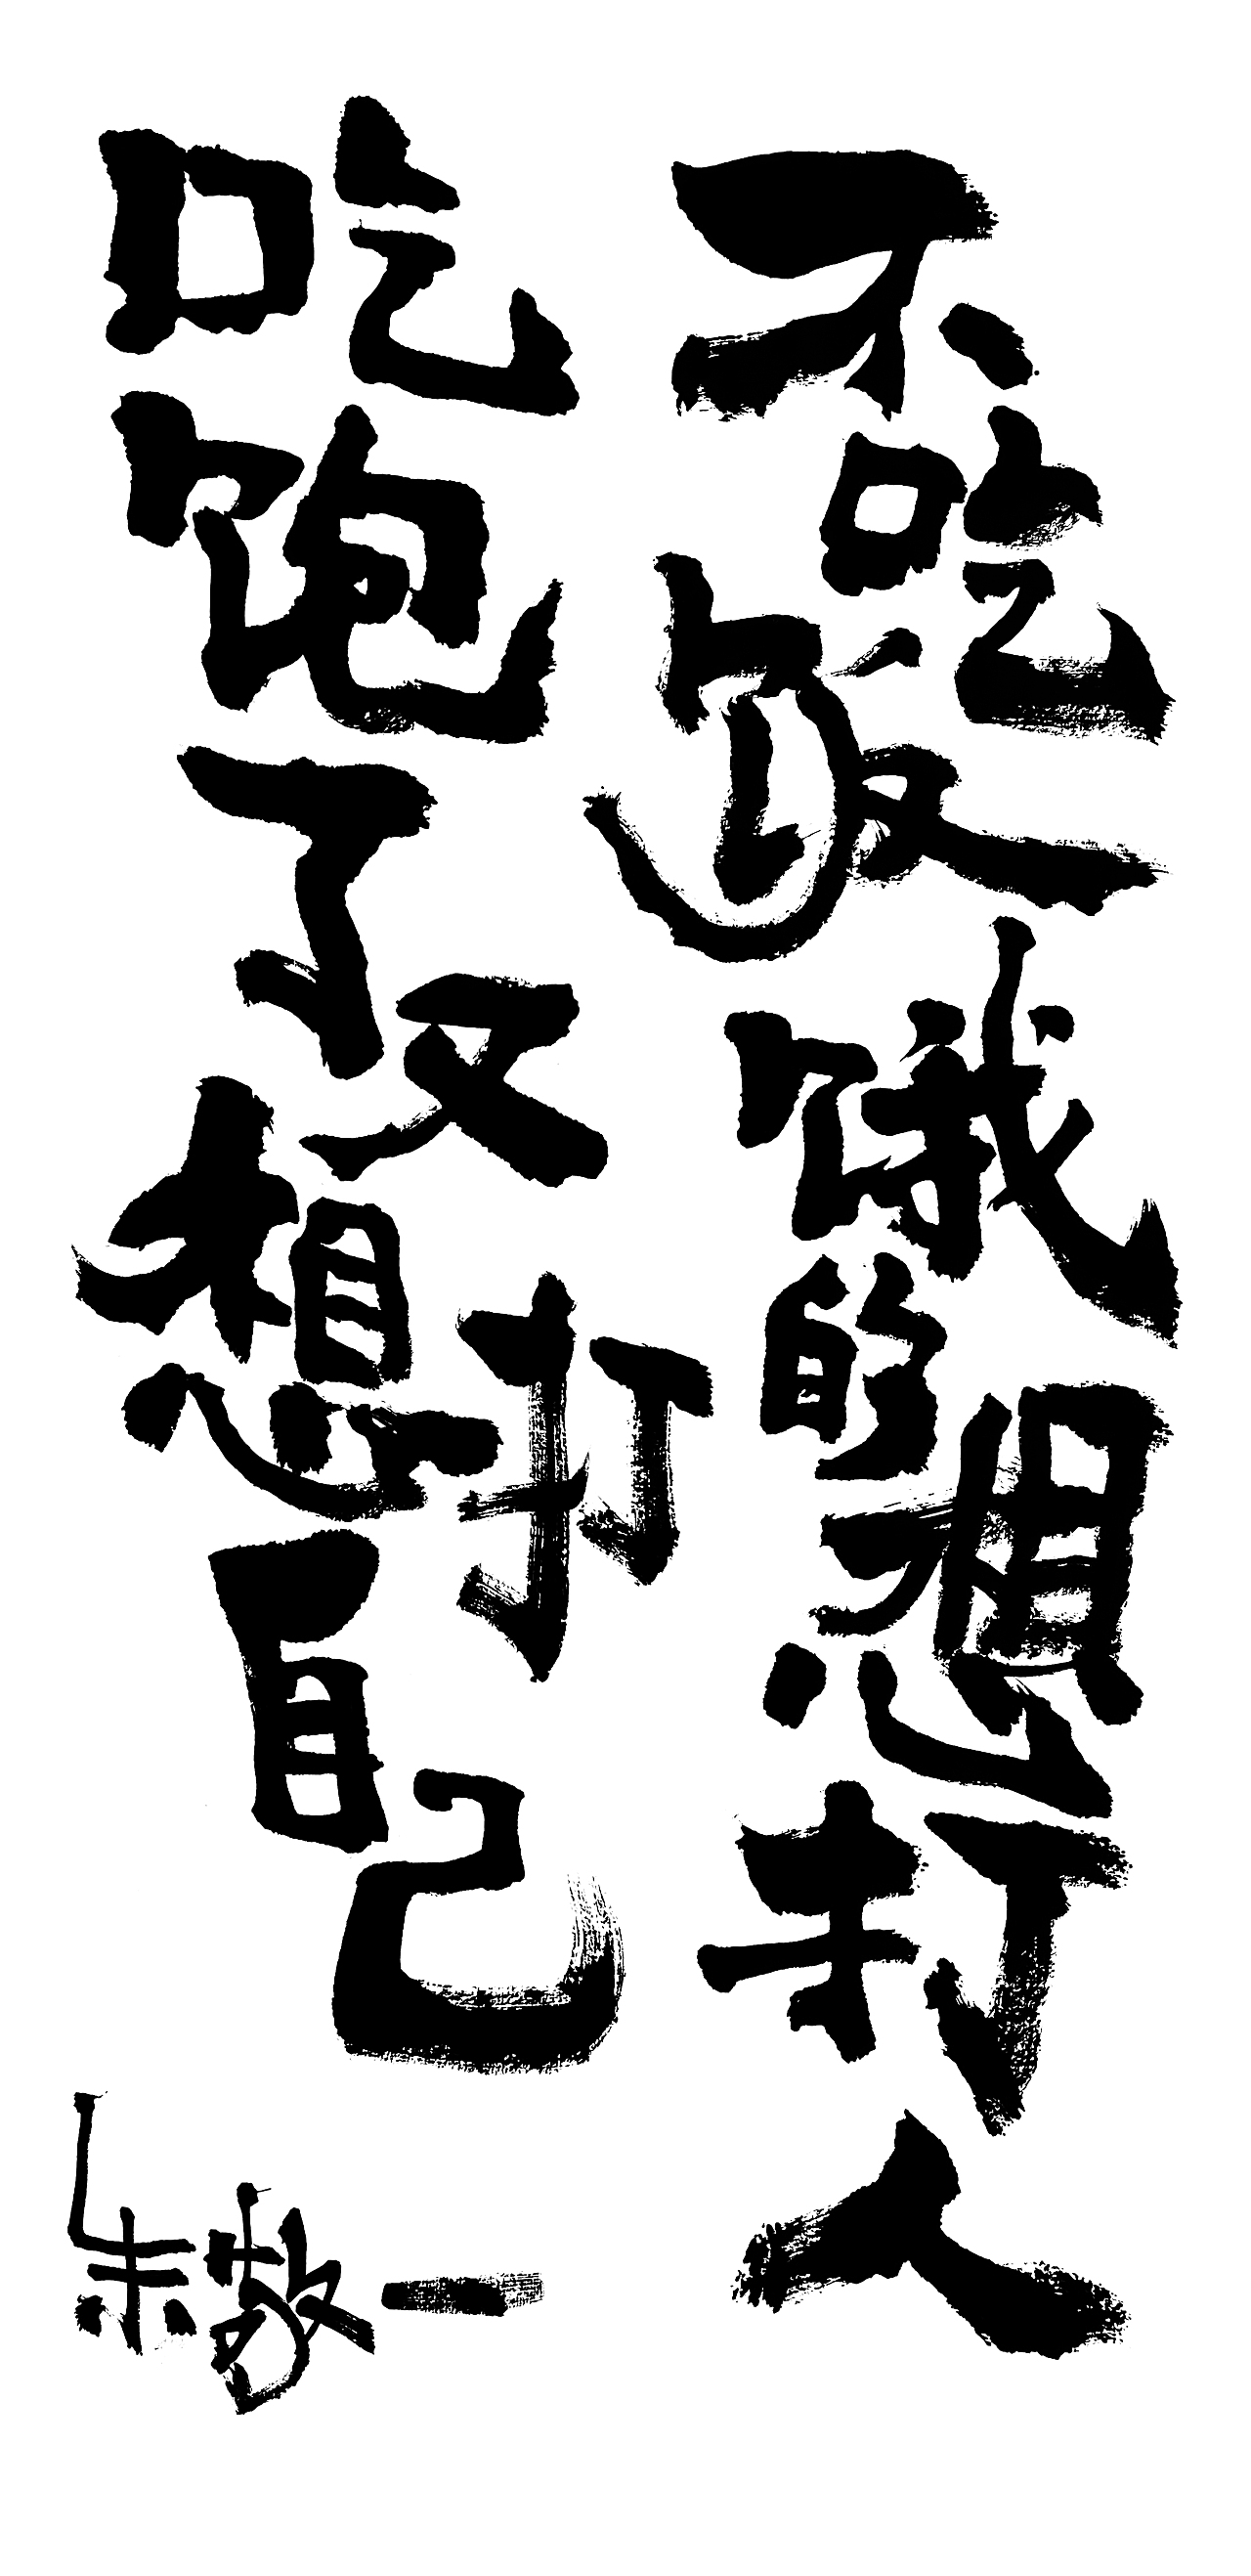 不吃饭饿的想打人
吃饱了又想打自己
朱敬一